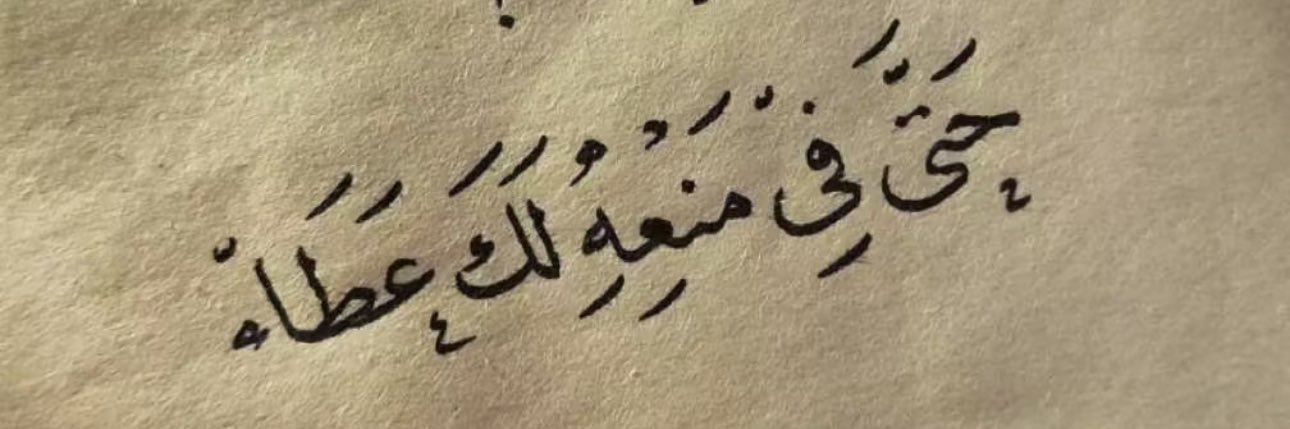 حَتَّى فِيْ مَنْعِهِ لَكَ عَطَاءْ